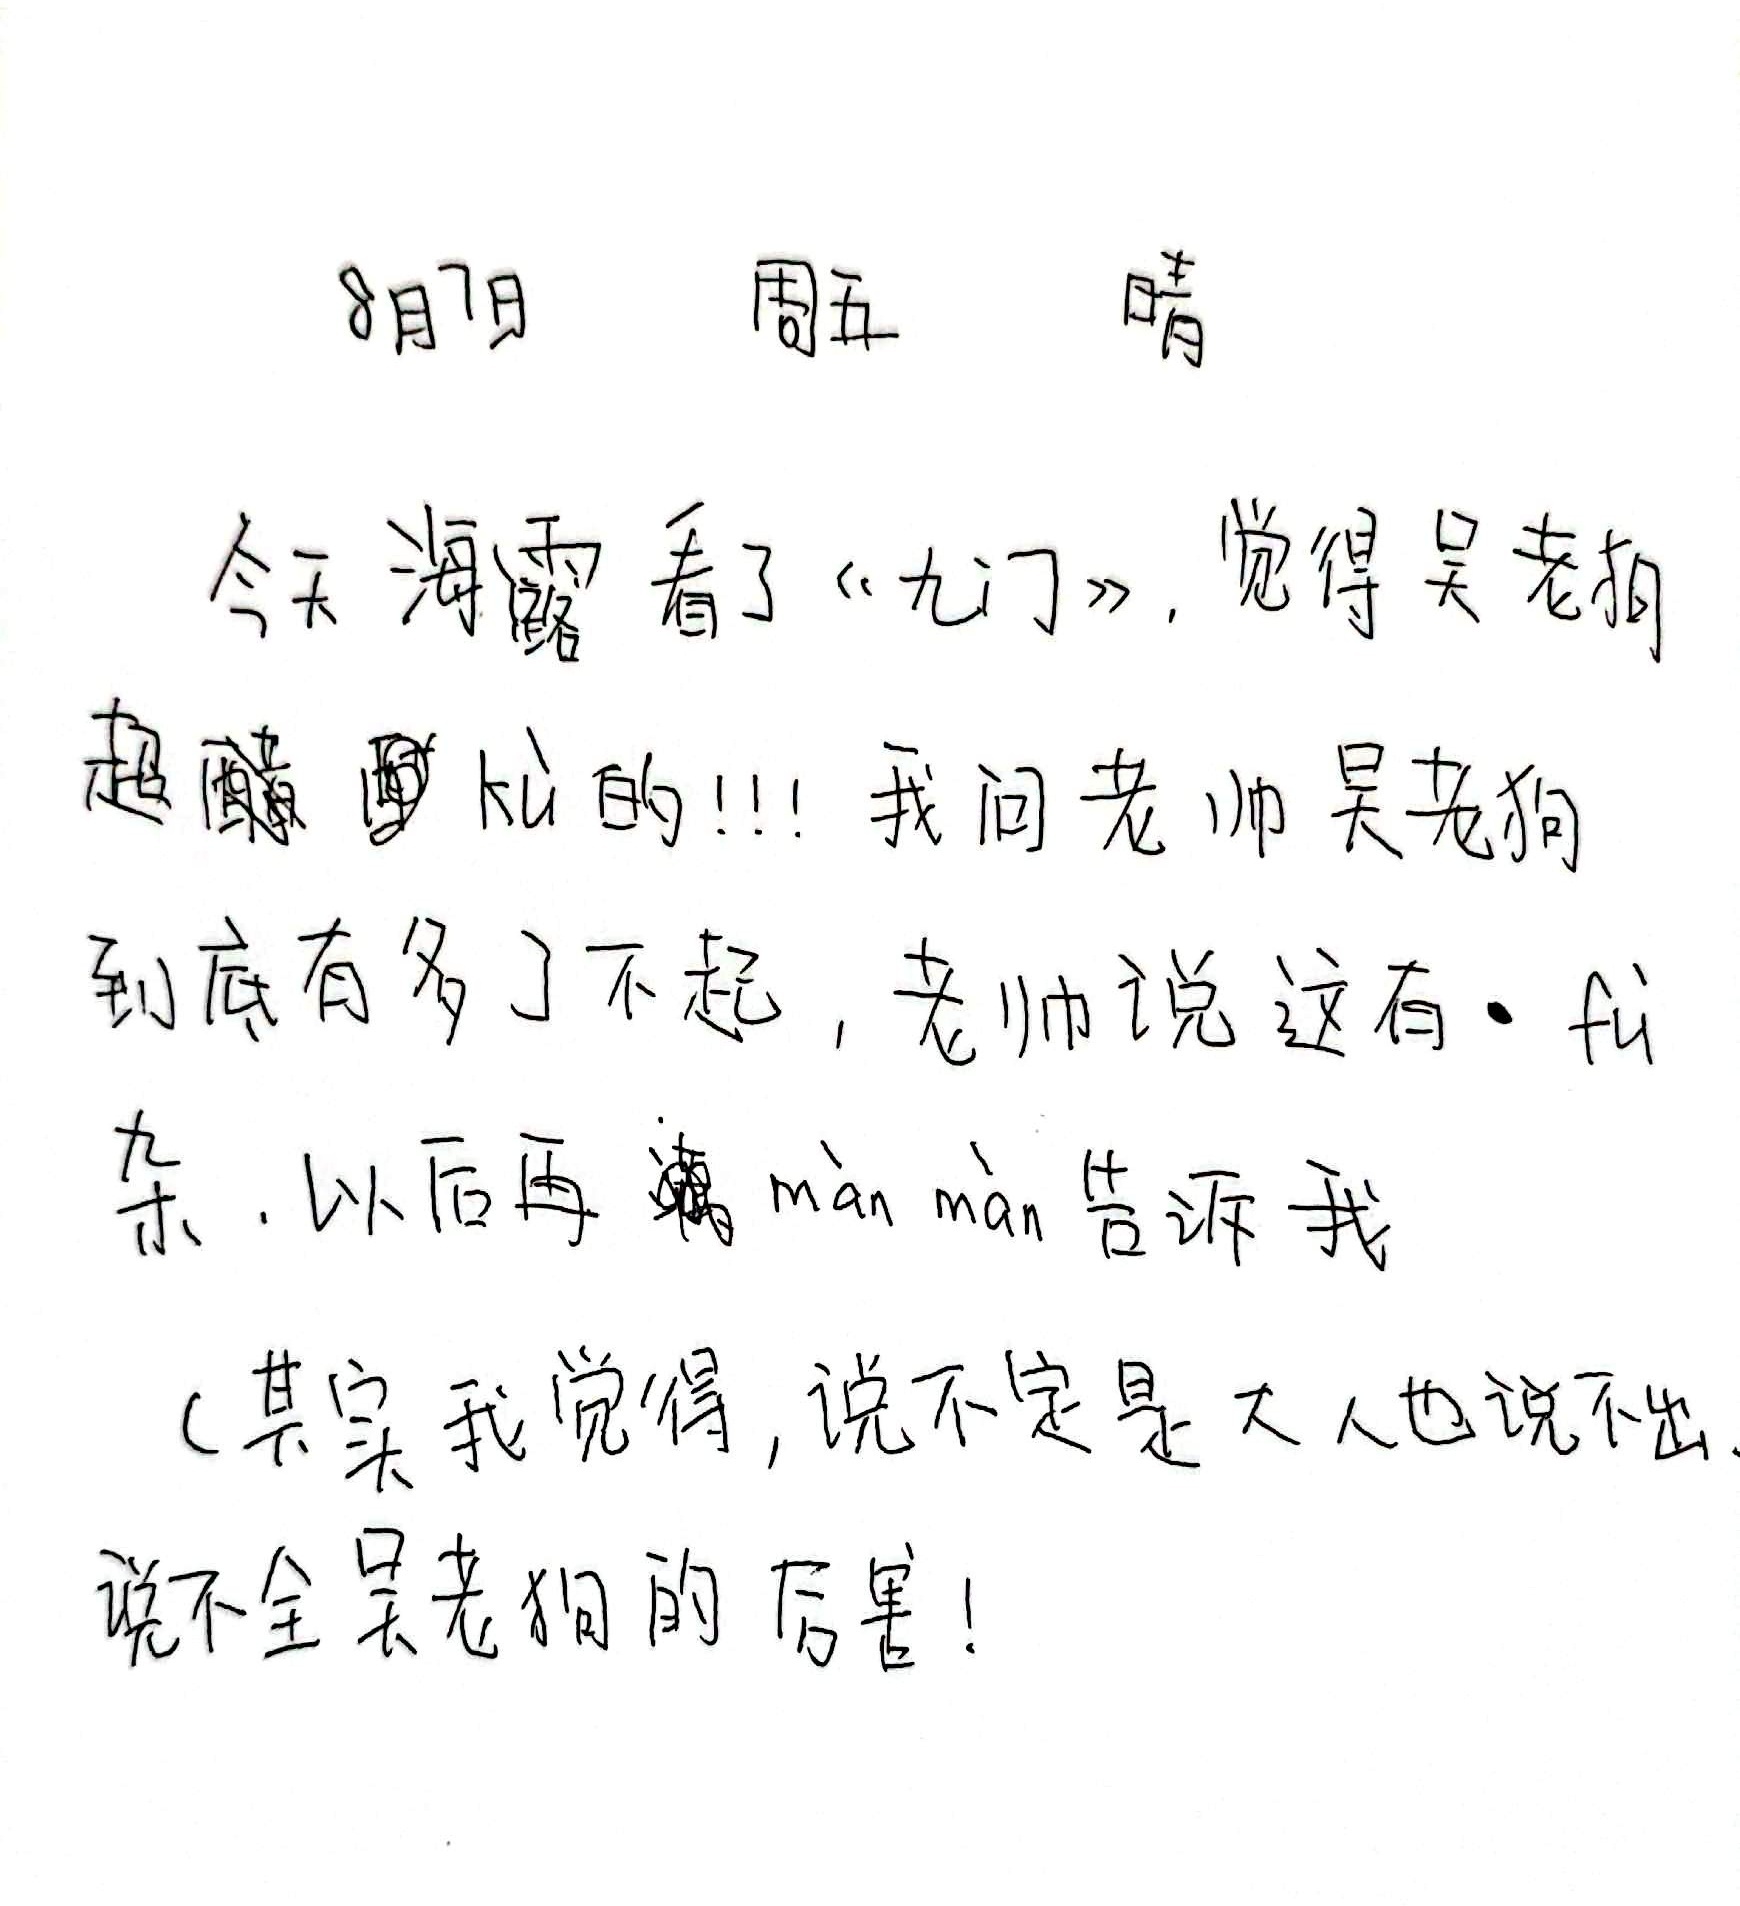 8月7日 周五 晴
今天海露看了《九门》,觉得吴老狗
超 kù的!!!我问老帅吴老狗
到底有多了不起,老帅说这有·fù
杂.以后再 màn màn告诉我
(其实我觉得,说不定是大人也说不出.
说不全吴老狗的厉害!